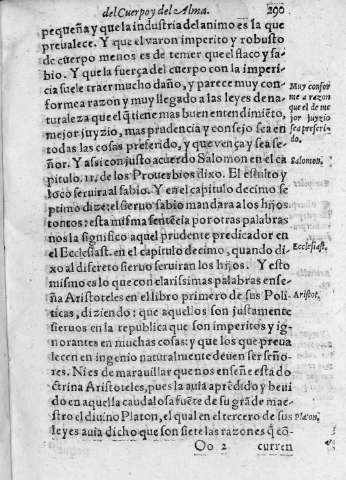 del Cuerpo y del Alma. 290
pequeña y que la industria del animo es la que
preualece. Y que el varon imperito y robusto
de cuerpo menos es de temer que el flaco y sa-
bio. Y que la fuerça del cuerpo con la imperi-
cia suele traer mucho daño, y parece muy con-
forme a razon y muy llegado a las leyes de na-
turaleza que el q̃ tiene mas buen entendimiẽto,
mejor juyzio, mas prudencia y consejo sea en
todas las cosas preferido, y que vença y sea se-
ñor. Y assi con justo acuerdo Salomon en el ca
pitulo. 11. de los Prouerbios dixo. El estulto y
loco seruira al sabio. Y en el capitulo decimo se
ptimo dize: el sieruo sabio mandara a los hijos
tontos: esta misma sentẽcia por otras palabras
nos la significo aquel prudente predicador en
el Ecclesiast. en el capitulo decimo, quando di-
xo al discreto sieruo seruiran los hijos. Y esto
mismo es lo que con clarissimas palabras ense-
ña Aristoteles en el libro primero de sus Poli-
ticas, diziendo: que aquellos son justamente
sieruos en la republica que son imperitos y ig-
norantes en muchas cosas: y que los que preua
lecen en ingenio naturalmente deuen ser seño-
res. Ni es de marauillar que nos enseñe esta do
ctrina Aristoteles, pues la auia aprẽdido y beui
do en aquella caudalosa fuẽte de su grãde mae-
stro el diuino Platon, el qual en el tercero de sus
leyes auia dicho que son siete las razones q̃ cõ-
Oo 2 curren
Muy confor
me a razon
que el de me
jor juyzio
sea preferi-
do.
Salomon.
Ecclesiast.
Aristot.
Platon.